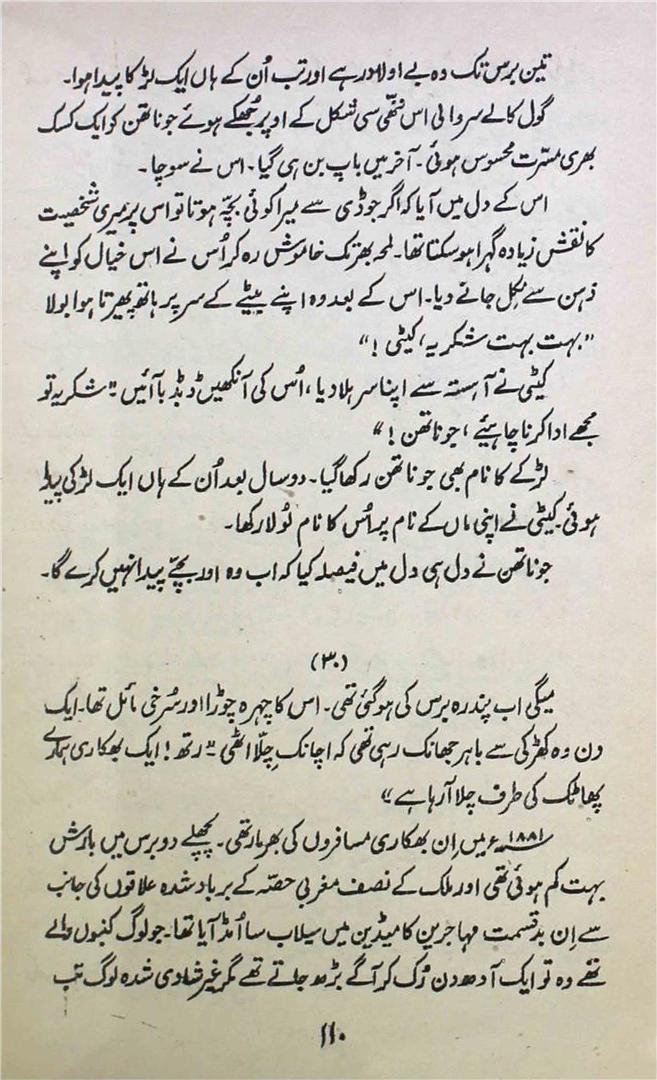 تین برس تک وہ بے اولاد رہے اور تب اُن کے ہاں ایک لڑکا پیدا ہوا۔
گول کالے سر والی اس ننھّی سی شکل کے اوپر جُھکے ہوئے جوناتھن کو ایک کسک
بھری مسّرت محسوس ہوئی۔ آخر میں باپ بن ہی گیا۔ اس نے سوچا۔
اس کے دل میں آیا کہ اگر جوڈی سے میرا کوئی بچّہ ہوتا تو اس پر میری شخصیت
کا نقش زیادہ گہرا ہو سکتا تھا۔ لمحہ بھر تک خاموش رہ کر اُس نے اس خیال کو اپنے
ذہن سے نکل جانے دیا۔ اس کے بعد وہ اپنے بیٹے کے سر پر ہاتھ پھیرتا ہوا بولا
”بہت بہت شکریہ، کیٹی!“
کیٹی نے آہستہ سے اپنا سر ہلا دیا، اُس کی آنکھیں ڈبڈبا آئیں ”شکریہ تو
مجھے ادا کرنا چاہیئے، جوناتھن!“
لڑکے کا نام بھی جوناتھن رکھا گیا۔ دو سال بعد اُن کے ہاں ایک لڑکی پیدا
ہوئی۔ کیٹی نے اپنی ماں کے نام پر اُس کا نام لُولا رکھا۔
جوناتھن نے دل ہی دل میں فیصلہ کیا کہ اب وہ اور بچّے پیدا نہیں کرے گا۔
(۳۰)
میگی اب پندرہ برس کی ہو گئی تھی۔ اس کا چہرہ چوڑا اور سُرخی مائل تھا۔ ایک
دن وہ کھڑکی سے باہر جھانک رہی تھی کہ اچانک چِلّا اٹھی ”رتھ! ایک بھکاری ہمارے
پھاٹک کی طرف چلا آ رہا ہے“
۱۸۸۱ء میں اِن بھکاری مسافروں کی بھرمار تھی۔ پچھلے دو برس میں بارش
بہت کم ہوئی تھی اور ملک کے نصف مغربی حصّہ کے برباد شدہ علاقوں کی جانب
سے اِن بدقسمت مہاجرین کا میڈین میں سیلاب سا اُمڈ آیا تھا۔ جو لوگ کنبوں والے
تھے وہ تو ایک آدھ دن رُک کر آگے بڑھ جاتے تھے مگر غیر شادی شدہ لوگ تب
۱۱۰